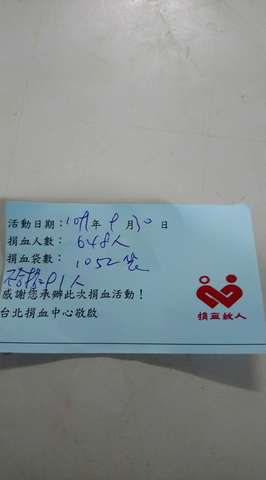 活動日期：109年9月30日
捐血人數：648人
捐血袋數：1052袋
不合格91人
感謝您承辦此次捐血活動！
台北捐血中心敬啟
捐血救人